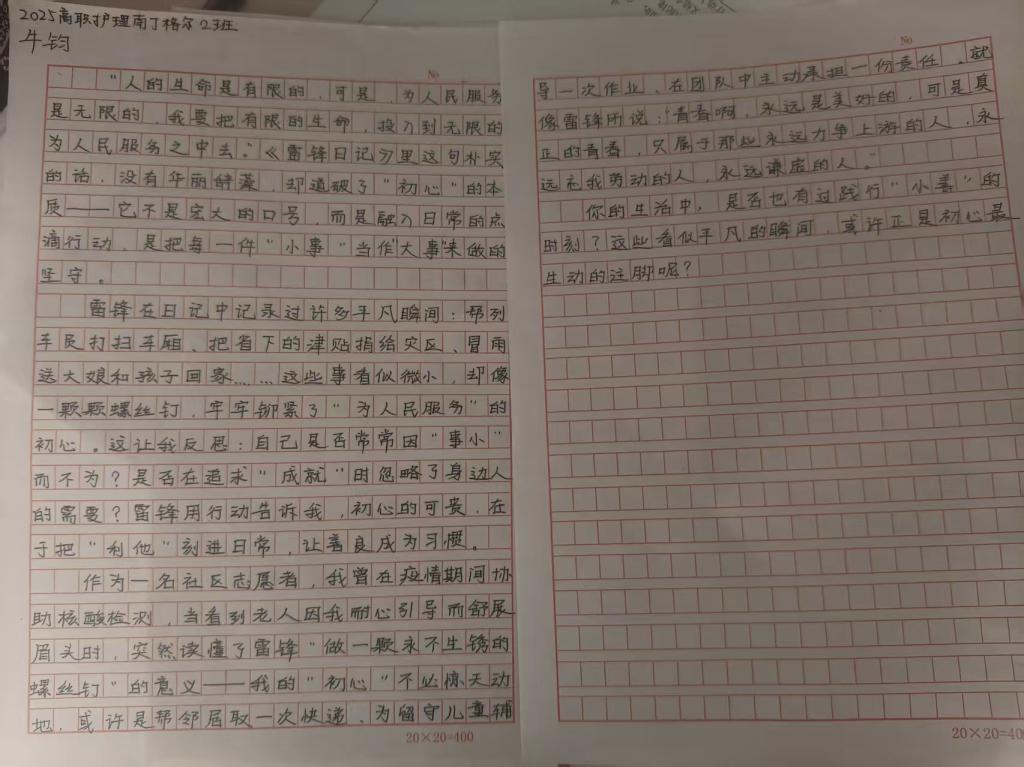 2025高职护理南丁格尔23班
牛钧
No
"人的生命是有限的,可是,为人民服务
是无限的,我要把有限的生命,投入到无限的
为人民服务之中去。"《雷锋日记》里这句朴实
的话,没有华丽辞藻,却道破了"初心"的本
质——它不是宏大的口号,而是融入日常的点
滴行动,是把每一件"小事"当作"大事"来做的
坚守。
雷锋在日记中记录过许多平凡瞬间:帮列
车员打扫车厢、把省下的津贴捐给灾区、冒雨
送大娘和孩子回家……这些事看似微小,却像
一颗颗螺丝钉,牢牢铆紧了"为人民服务"的
初心。这让我反思:自己是否常常因"事小"
而不为?是否在追求"成就"时忽略了身边人
的需要?雷锋用行动告诉我,初心的可贵,在
于把"利他"刻进日常,让善良成为习惯。
作为一名社区志愿者,我曾在疫情期间协
助核酸检测,当看到老人因我耐心引导而舒展
眉头时,突然读懂了雷锋"做一颗永不生锈的
螺丝钉"的意义——我的"初心"不必惊天动
地,或许是帮邻居取一次快递、为留守儿童辅
20×20=400
No
导一次作业、在团队中主动承担一份责任。就
像雷锋所说:"青春啊,永远是美好的,可是真
正的青春,只属于那些永远力争上游的人,永
远忘我劳动的人,永远谦虚的人。"
你的生活中,是否也有过践行"小善"的
时刻?这些看似平凡的瞬间,或许正是初心最
生动的注脚呢?
20×20=400